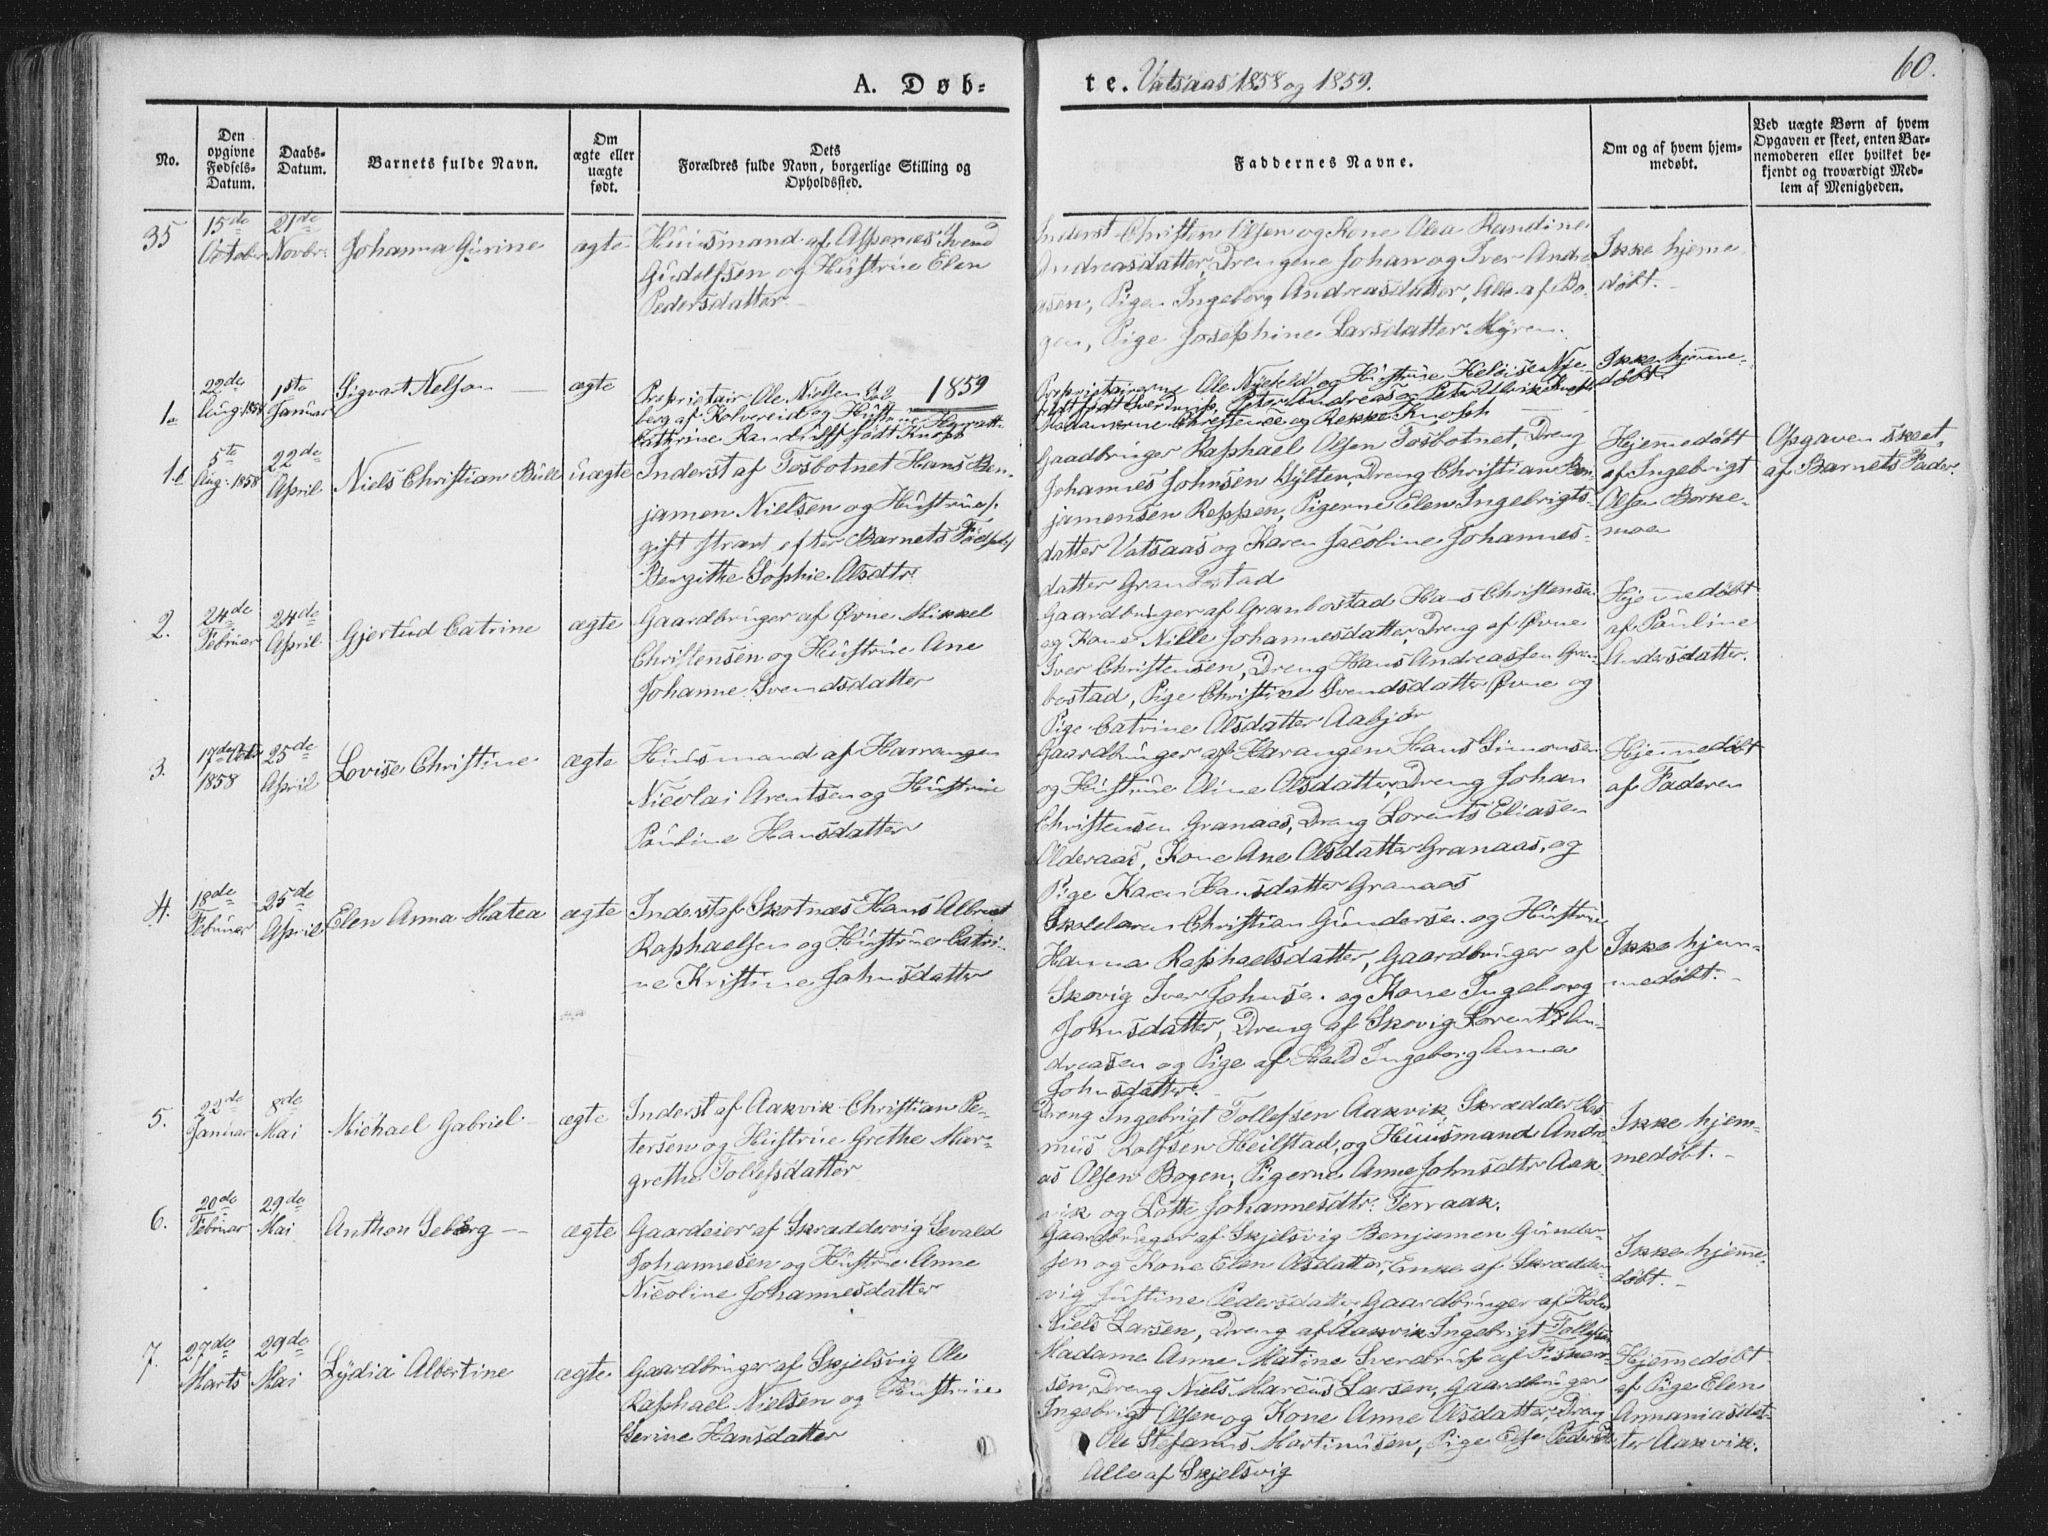 60.
A. Døb-
te. Vatsaas 1858 og 1859.
No.
Den
opgivne
Fødsels-
Datum.
Daabs-
Datum.
Barnets fulde Navn.
Om
ægte eller
uægte
født.
Dets
Forældres fulde Navn, borgerlige Stilling og
Opholdssted.
Faddernes Navne.
Om og af hvem hjem-
medøbt.
Ved uægte Børn af hvem
Opgaven er skeet, enten Bar-
nemoderen eller hvilket be-
kjendt og troværdigt Med-
lem af Menigheden.
35
15de
October
21de
Novbr:
Johanna Gurine
ægte
Huusmand af Aspernes Svend
Gudolfsen og Hustrue Elen
Pedersdatter
Inderst Christen Olsen og Kone Olea Randine
Andreasdatter, Drengene Johan og Iver Andre-
asen, Pigen Ingeborg Andreasdatter, Alle af Bo-
gen, Pige Josephine Larsdatter Myren.
Ikke hjemme-
døbt.
1859
1a
22de
Aug. 1858
1ste
Januar
Sigvart Nelson
ægte
Proprietair Ole Nielsen Col
berg af Kolvereid og Hustrue
Cathrine Randulff født Knoph
Proprietairerne Ole Nyefeld og Hustrue Heloise Nye-
feldt født Sverdrup, Peter Andreas og Peter Ulrik Knoph
Madamerne Christence og Rekke Knoph
Ikke hjemme-
døbt.
1b
5te
Aug: 1858
22de
April
Niels Christian Bull
uægte
Inderst af Tosbotnet Hans Ben-
jamen Nielsen og Hustrue,
gift strax efter Barnets Fødsel,
Bergithe Sophie Olsdtr
Gaardbruger Raphael Olsen Tosbotnet, Dreng
Johannes Johnsen Hylten, Dreng Christian Ben-
jamensen Reppen, Pigerne Elen Ingebrigts-
datter Vatsaas og Karen Jacobine Johannes-
datter Granbostad
Hjemmedøbt
af Ingebrigt
Olsen Borke-
moe
Opgaven skeet
af Barnets Fader.
2.
24de
Februar
24de
April
Gjertrud Catrine
ægte
Gaardbruger af Øvne Mikkel
Christensen og Hustrue Ane
Johanne Svendsdatter
Gaardbruger af Granbostad Hans Christensen
og Kone Nille Johannesdatter, Dreng af Øvne
Iver Christensen, Dreng Hans Andreassen Gran-
bostad, Pige Christine Svendsdatter Øvne og
Pige Catrine Olsdatter Aabjør
Hjemmedøbt
af Pauline
Andersdatter.
3.
17de
1858
25de
April
Lovise Christine
ægte
Huusmand af Harrangen
Nicolai Arentsen og Hustrue
Pauline Hansdatter
Gaardbruger af Harangen Hans Simonsen
og Hustrue Oline Olsdatter, Dreng Johan
Christensen Granaas, Dreng Lorents Eliasen
Olderaas, Kone Ane Olsdatter Granaas, og
Pige Karen Hansdatter Granaas
Hjemmedøbt
af Faderen
4.
18de
Februar
25de
April
Elen Anna Matea
ægte
Inderst af Skotnæs Hans Albregt
Raphaelsen og Hustrue Catri-
ne Kristine Johnsdatter
Skolelærer Christian Gundersen og Hustrue
Hanna Raphaelsdatter, Gaardbruger af
Skovig Iver Johnsen og Kone Ingeborg
Johnsdatter, Dreng af Skovig Lorents An-
dreasen og Pige af Hald Ingeborg Anna
Johnsdatter.
Ikke hjem-
medøbt.
5.
22de
Januar
8de
Mai
Michael Gabriel
ægte
Inderst af Aakvik Christian Pe-
tersen og Hustrue Grethe Mar-
grethe Tollefsdatter
Dreng Ingebrigt Tollefsen Aakvik, Skrædder Ras-
mus Rolfsen Heilstad, og Huusmand Andre
as Olsen Bogen, Pigerne Anne Johnsdtr Aak-
vik og Lotte Johannesdtr: Terraak.
Ikke hjem-
medøbt.
6.
20de
Februar
29de
Mai
Anthon Seberg
ægte
Gaardeier af Skræddervig Sevald
Johannesen og Hustrue Anne
Nicoline Johannesdatter
Gaardbruger af Skjelsvig Benjamen Gunder-
sen og Kone Elen Olsdatter, Enke af Skrædder-
vig Justine Pedersdatter, Gaardbruger af Holm
Niels Larsen, Dreng af Aakvik Ingebrigt Tollefsen
Ikke hjemme-
døbt.
7.
27de
Marts
29de
Mai
Lydia Albertine
ægte
Gaardbruger af Skjelsvig Ole
Raphael Nielsen og Hustrue
Serine Hansdatter
Madame Anne Matine Sverdrup af
sen, Dreng Niels Marcus Larsen, Gaardbruger
Ingebrigt Olsen og Kone Anne Olsdatter, Dreng
Ole Stefanus Martinusen, Pige Else
Alle af Skjelsvig
Hjemmedøbt
af Pige Elen
Annaniasdat-
ter Aakvik.